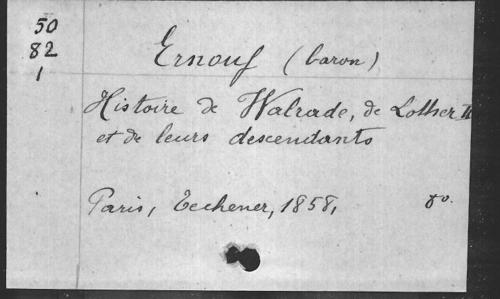 50
82
1
Ernouf (baron)
Histoire de Walrade, de Lother II
et de leurs descendants
Paris, Techener, 1858, 8o.